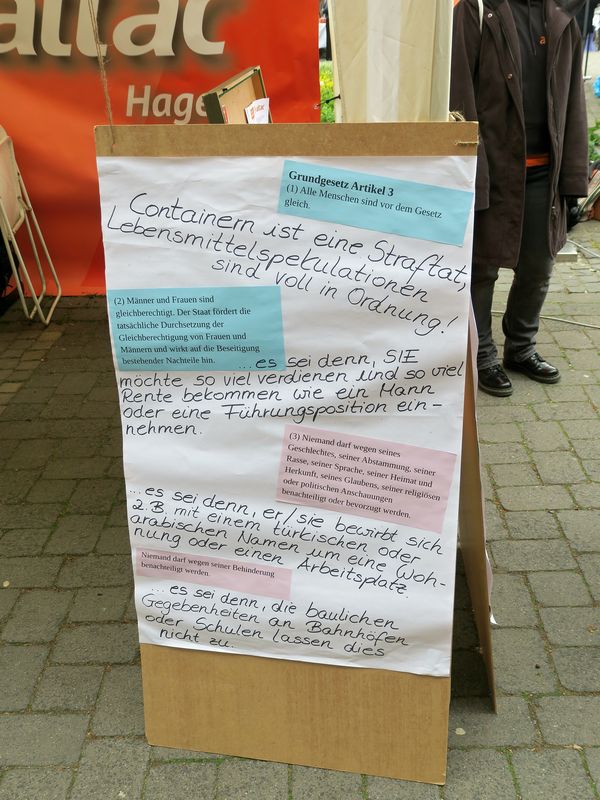 attac
Hage
attac
Grundgesetz Artikel 3
(1) Alle Menschen sind vor dem Gesetz
gleich.
Containern ist eine Straftat,
Lebensmittelspekulationen
sind voll in Ordnung!
(2) Männer und Frauen sind
gleichberechtigt. Der Staat fördert die
tatsächliche Durchsetzung der
Gleichberechtigung von Frauen und
Männern und wirkt auf die Beseitigung
bestehender Nachteile hin.
...es sei denn, SIE
möchte so viel verdienen und so viel
Rente bekommen wie ein Mann
oder eine Führungsposition ein-
nehmen.
(3) Niemand darf wegen seines
Geschlechtes, seiner Abstammung, seiner
Rasse, seiner Sprache, seiner Heimat und
Herkunft, seines Glaubens, seiner religiösen
oder politischen Anschauungen
benachteiligt oder bevorzugt werden.
...es sei denn, er/sie bewirbt sich
z.B. mit einem türkischen oder
arabischen Namen um eine Woh-
nung oder einen Arbeitsplatz.
Niemand darf wegen seiner Behinderung
benachteiligt werden.
...es sei denn, die baulichen
Gegebenheiten an Bahnhöfen
oder Schulen lassen dies
nicht zu.